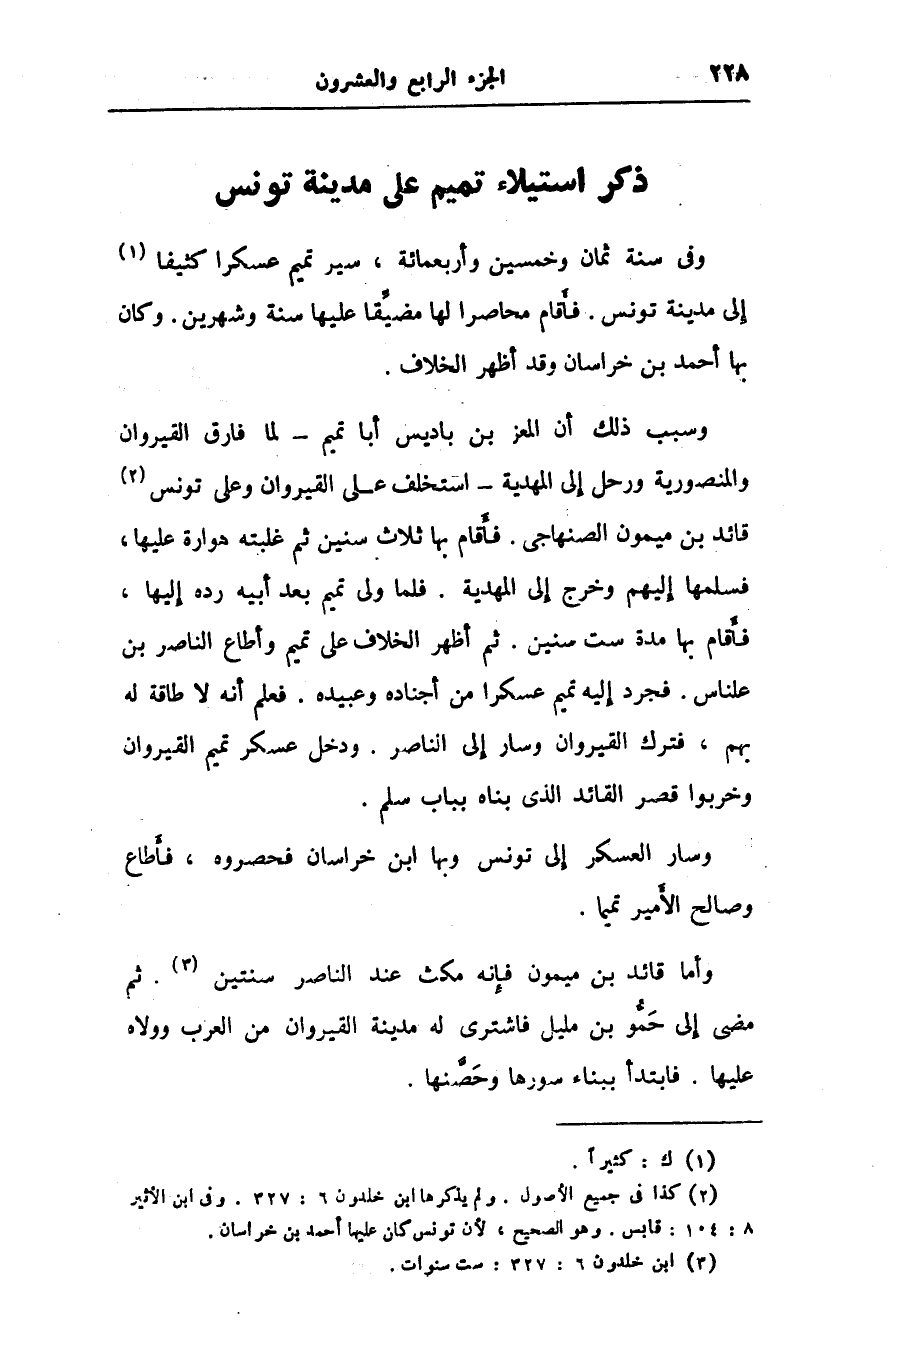 ٢٢٨ الجزء الرابع والعشرون
ذكر استيلاء تميم على مدينة تونس
وفى سنة ثمان وخمسين وأربعمائة ، سير تميم عسكرا كثيفا (١)
إلى مدينة تونس . فأقام محاصرا لها مضيِّقا عليها سنة وشهرين . وكان
بها أحمد بن خراسان وقد أظهر الخلاف .
وسبب ذلك أن المعز بن باديس أبا تميم – لما فارق القيروان
والمنصورية ورحل إلى المهدية – استخلف على القيروان وعلى تونس (٢)
قائد بن ميمون الصنهاجى . فأقام بها ثلاث سنين ثم غلبته هوارة عليها ،
فسلمها إليهم وخرج إلى المهدية . فلما ولى تميم بعد أبيه رده إليها ،
فأقام بها مدة ست سنين . ثم أظهر الخلاف على تميم وأطاع الناصر بن
علناس . فجرد إليه تميم عسكرا من أجناده وعبيده . فعلم أنه لا طاقة له
بهم ، فترك القيروان وسار إلى الناصر . ودخل عسكر تميم القيروان
وخربوا قصر القائد الذى بناه بباب سلم .
وسار العسكر إلى تونس وبها ابن خراسان فحصروه ، فأطاع
وصالح الأمير تميما .
وأما قائد بن ميمون فإنه مكث عند الناصر سنتين (٣) . ثم
مضى إلى حَمُّو بن مليل فاشترى له مدينة القيروان من العرب وولاه
عليها . فابتدأ ببناء سورها وحَصَّنها .
(١) ك : كثيراً .
(٢) كذا فى جميع الأصول . ولم يذكرها ابن خلدون ٦ : ٣٢٧ . وفى ابن الأثير
٨ : ١٠٤ : قابس . وهو الصحيح ، لأن تونس كان عليها أحمد بن خراسان .
(٣) ابن خلدون ٦ : ٣٢٧ : ست سنوات .